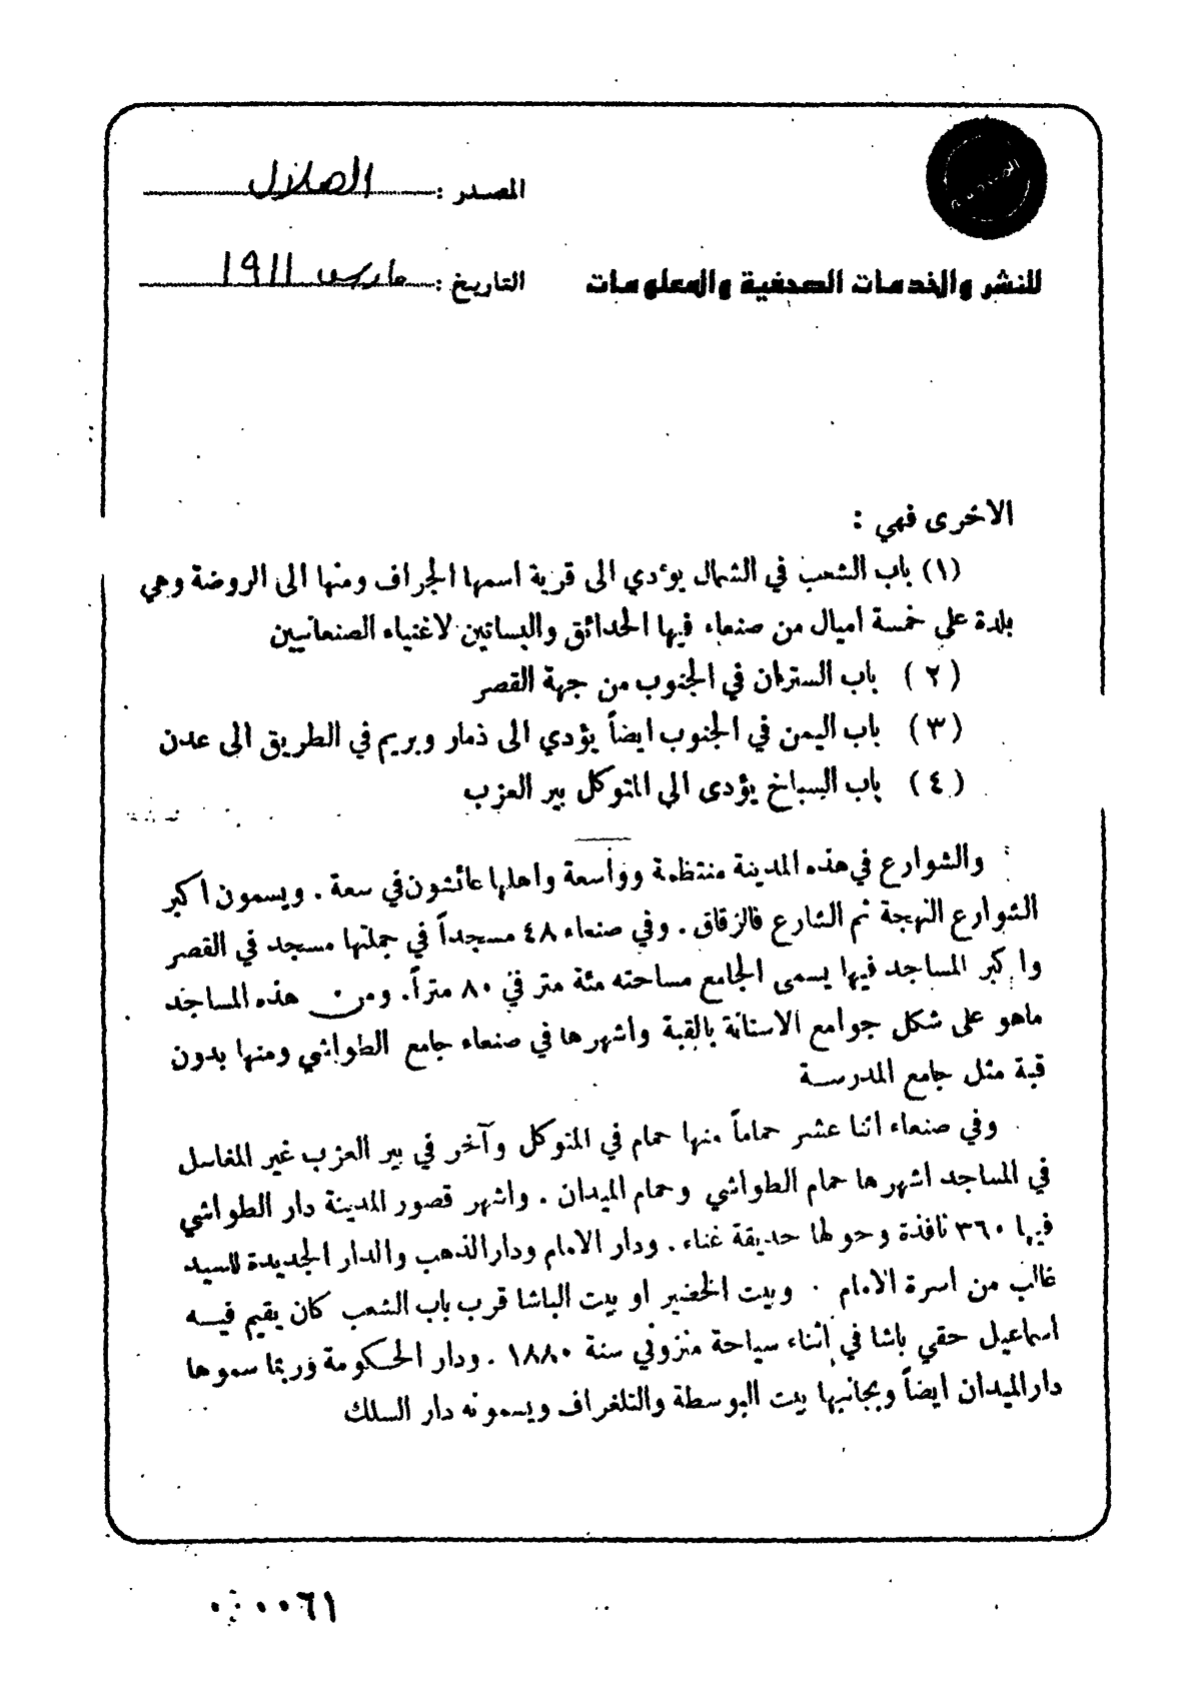 المصدر : الهلال
للنشر والخدمات الصحفية والمعلومات
التاريخ : مارس ١٩١١
الاخرى فهي :
(١) باب الشعب في الشمال يؤدي الى قرية اسمها الجراف ومنها الى الروضة وهي
بلدة على خمسة اميال من صنعاء فيها الحدائق والبساتين لاغنياء الصنعانيين
(٢) باب الستران في الجنوب من جهة القصر
(٣) باب اليمن في الجنوب ايضاً يؤدي الى ذمار ويريم في الطريق الى عدن
(٤) باب السباخ يؤدى الى المتوكل بير العزب
والشوارع في هذه المدينة منتظمة وواسعة واهلها عائشون في سعة . ويسمون اكبر
الشوارع النهجة ثم الشارع فالزقاق . وفي صنعاء ٤٨ مسجداً في جملتها مسجد في القصر
واكبر المساجد فيها يسمى الجامع مساحته مئة متر في ٨٠ متراً . ومن هذه المساجد
ماهو على شكل جوامع الاستانة بالقبة واشهرها في صنعاء جامع الطواشي ومنها بدون
قبة مثل جامع المدرسة
وفي صنعاء اثنا عشر حماماً منها حمام في المتوكل وآخر في بير العزب غير المغاسل
في المساجد اشهرها حمام الطواشي وحمام الميدان . واشهر قصور المدينة دار الطواشي
فيها ٣٦٠ نافذة وحولها حديقة غناء . ودار الامام ودار الذهب والدار الجديدة للسيد
غالب من اسرة الامام . وبيت الخضير او بيت الباشا قرب باب الشعب كان يقيم فيه
اسماعيل حقي باشا في اثناء سياحة منزوني سنة ١٨٨٠ . ودار الحكومة وربما سموها
دار الميدان ايضاً وبجانبها بيت البوسطة والتلغراف ويسمونه دار السلك